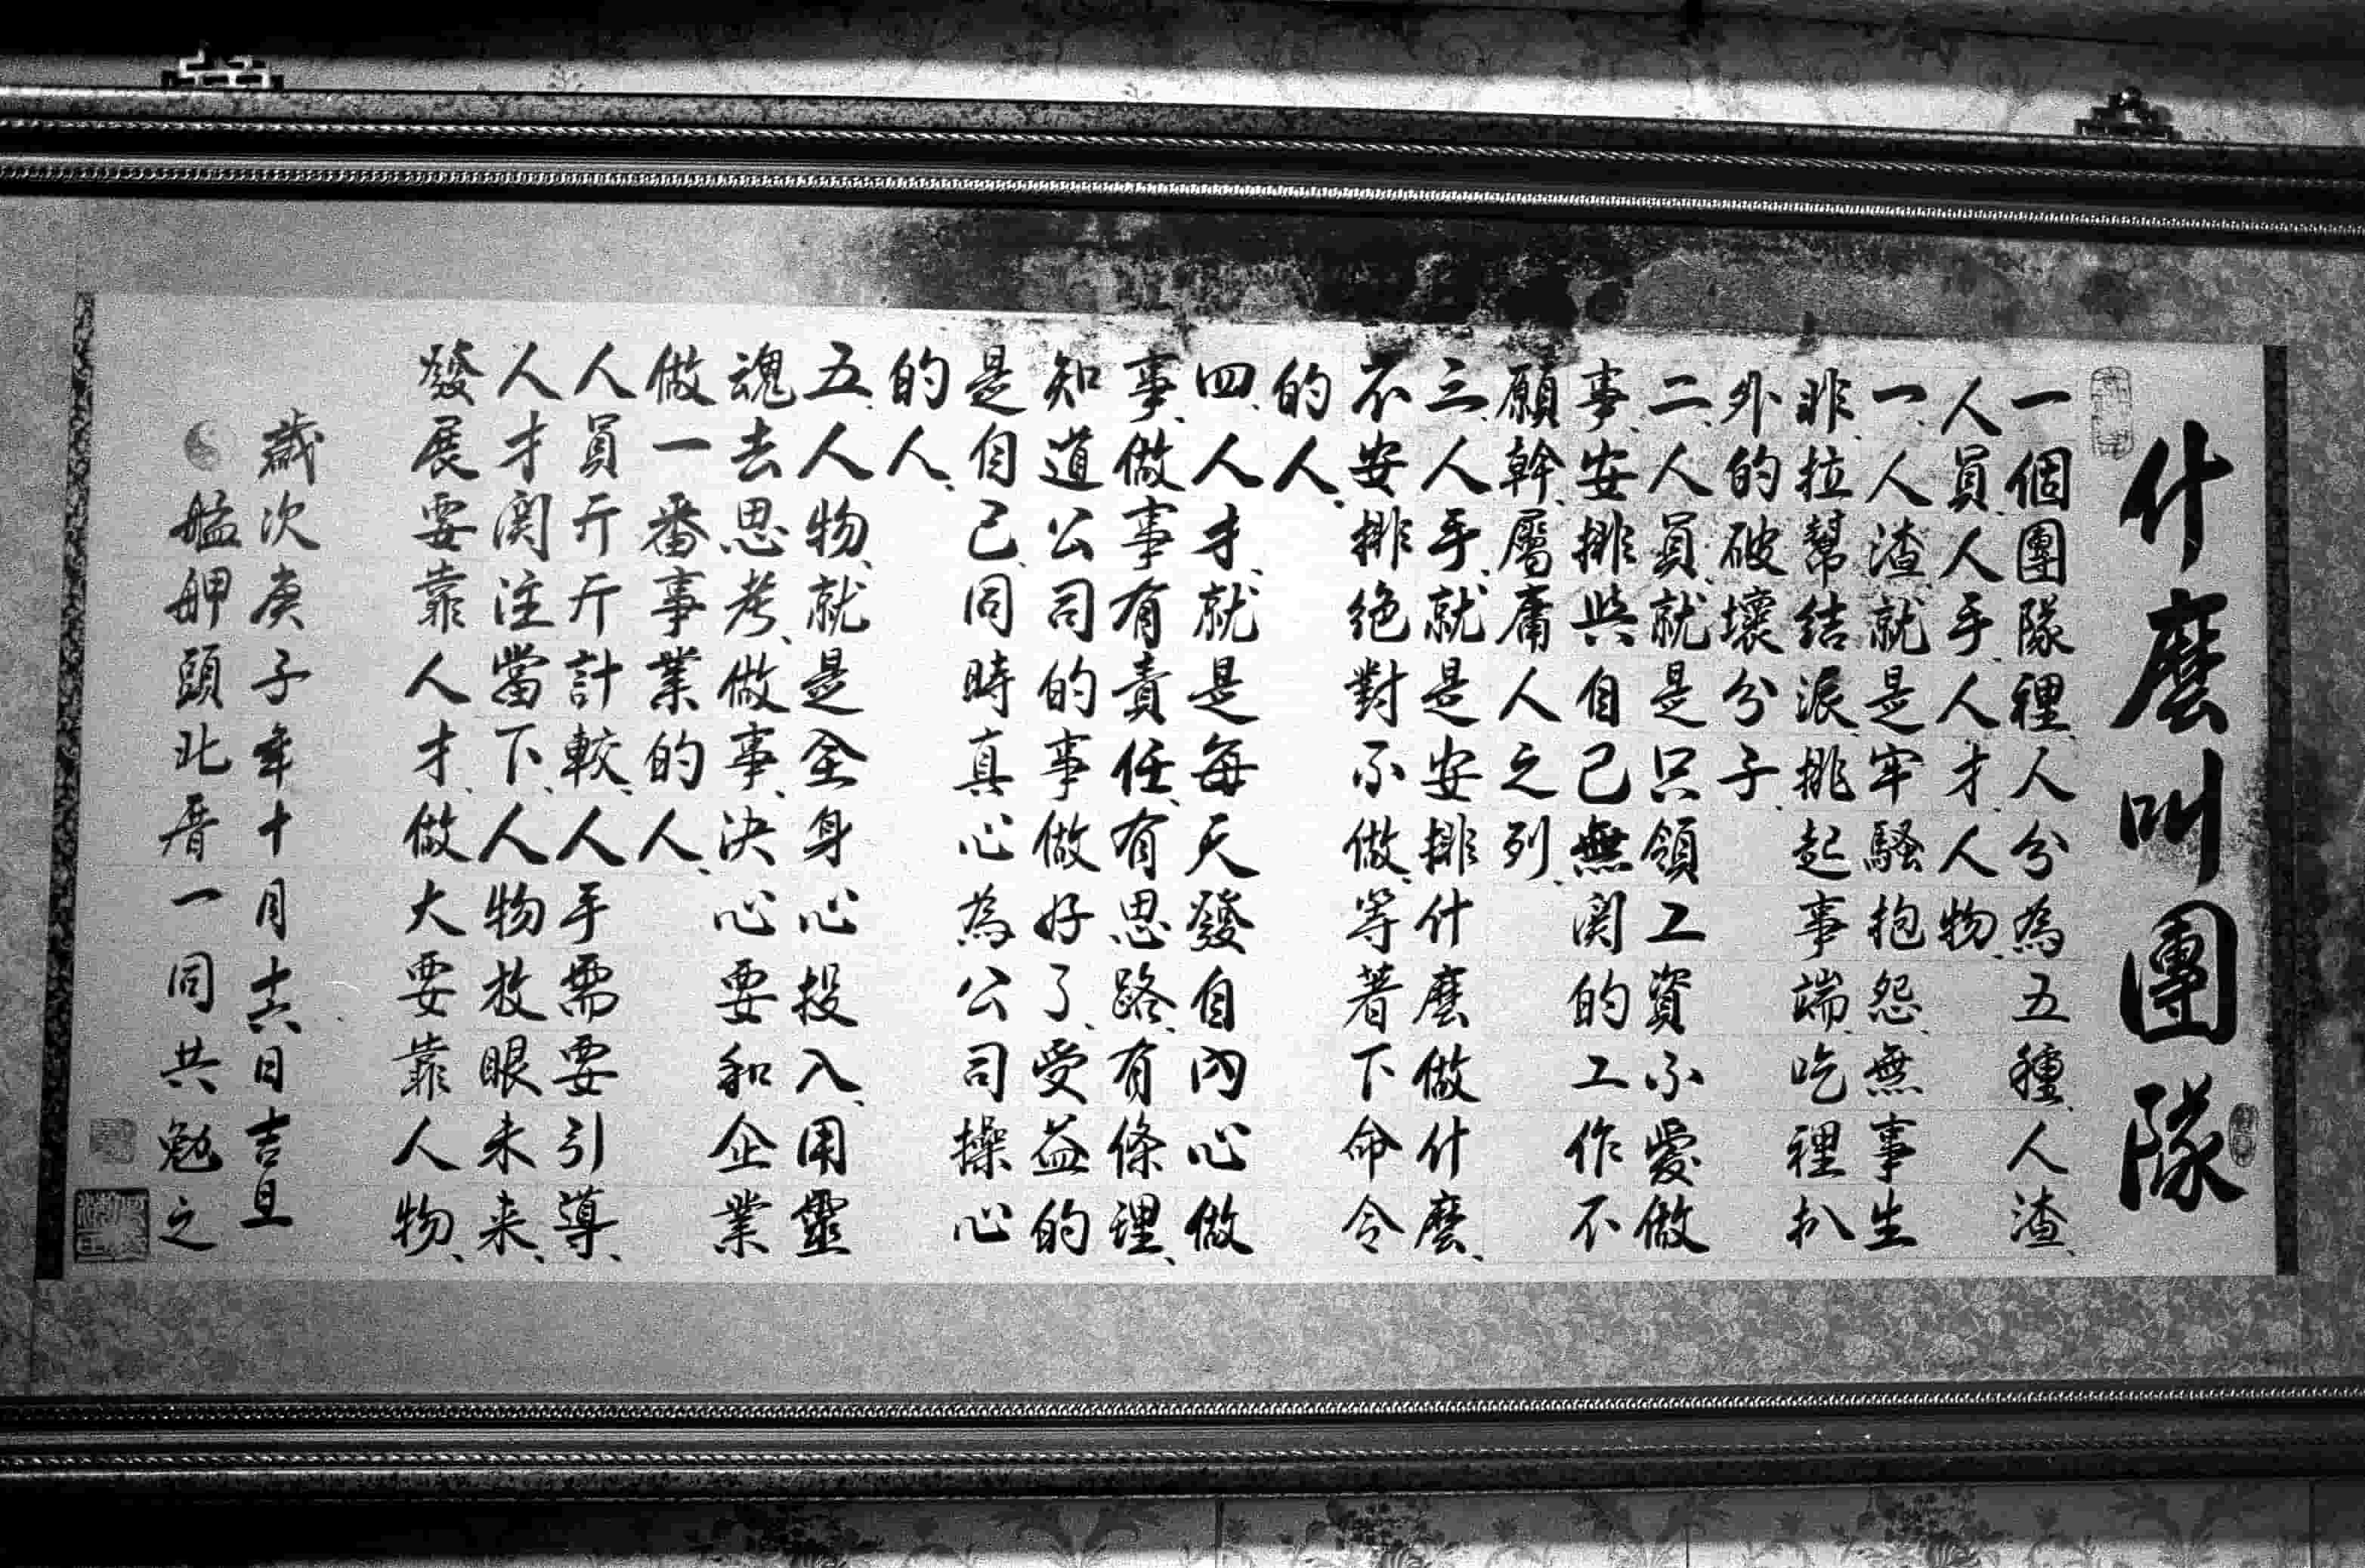 什麼叫團隊
一個團隊裡、人分為五種、人渣、
人員、人手、人才、人物、
一、人渣、就是牢騷抱怨、無事生
非、拉幫結派、挑起事端、吃裡扒
外的破壞分子、
二、人員、就是只領工資不愛做
事、安排與自己無関的工作不
願幹、屬庸人之列、
三、人手、就是安排什麼做什麼、
不安排絕對不做、等著下命令
的人、
四、人才、就是每天發自內心做
事、做事有責任、有思路、有條理、
知道公司的事做好了、受益的
是自己、同時真心為公司操心
的人、
五、人物、就是全身心投入、用靈
魂去思考、做事、決心要和企業
做一番事業的人、
人員斤斤計較、人手需要引導、
人才関注當下、人物放眼未来、
發展要靠人才、做大要靠人物、
歲次庚子年十月十六日吉旦
艋舺頭北厝一同共勉之